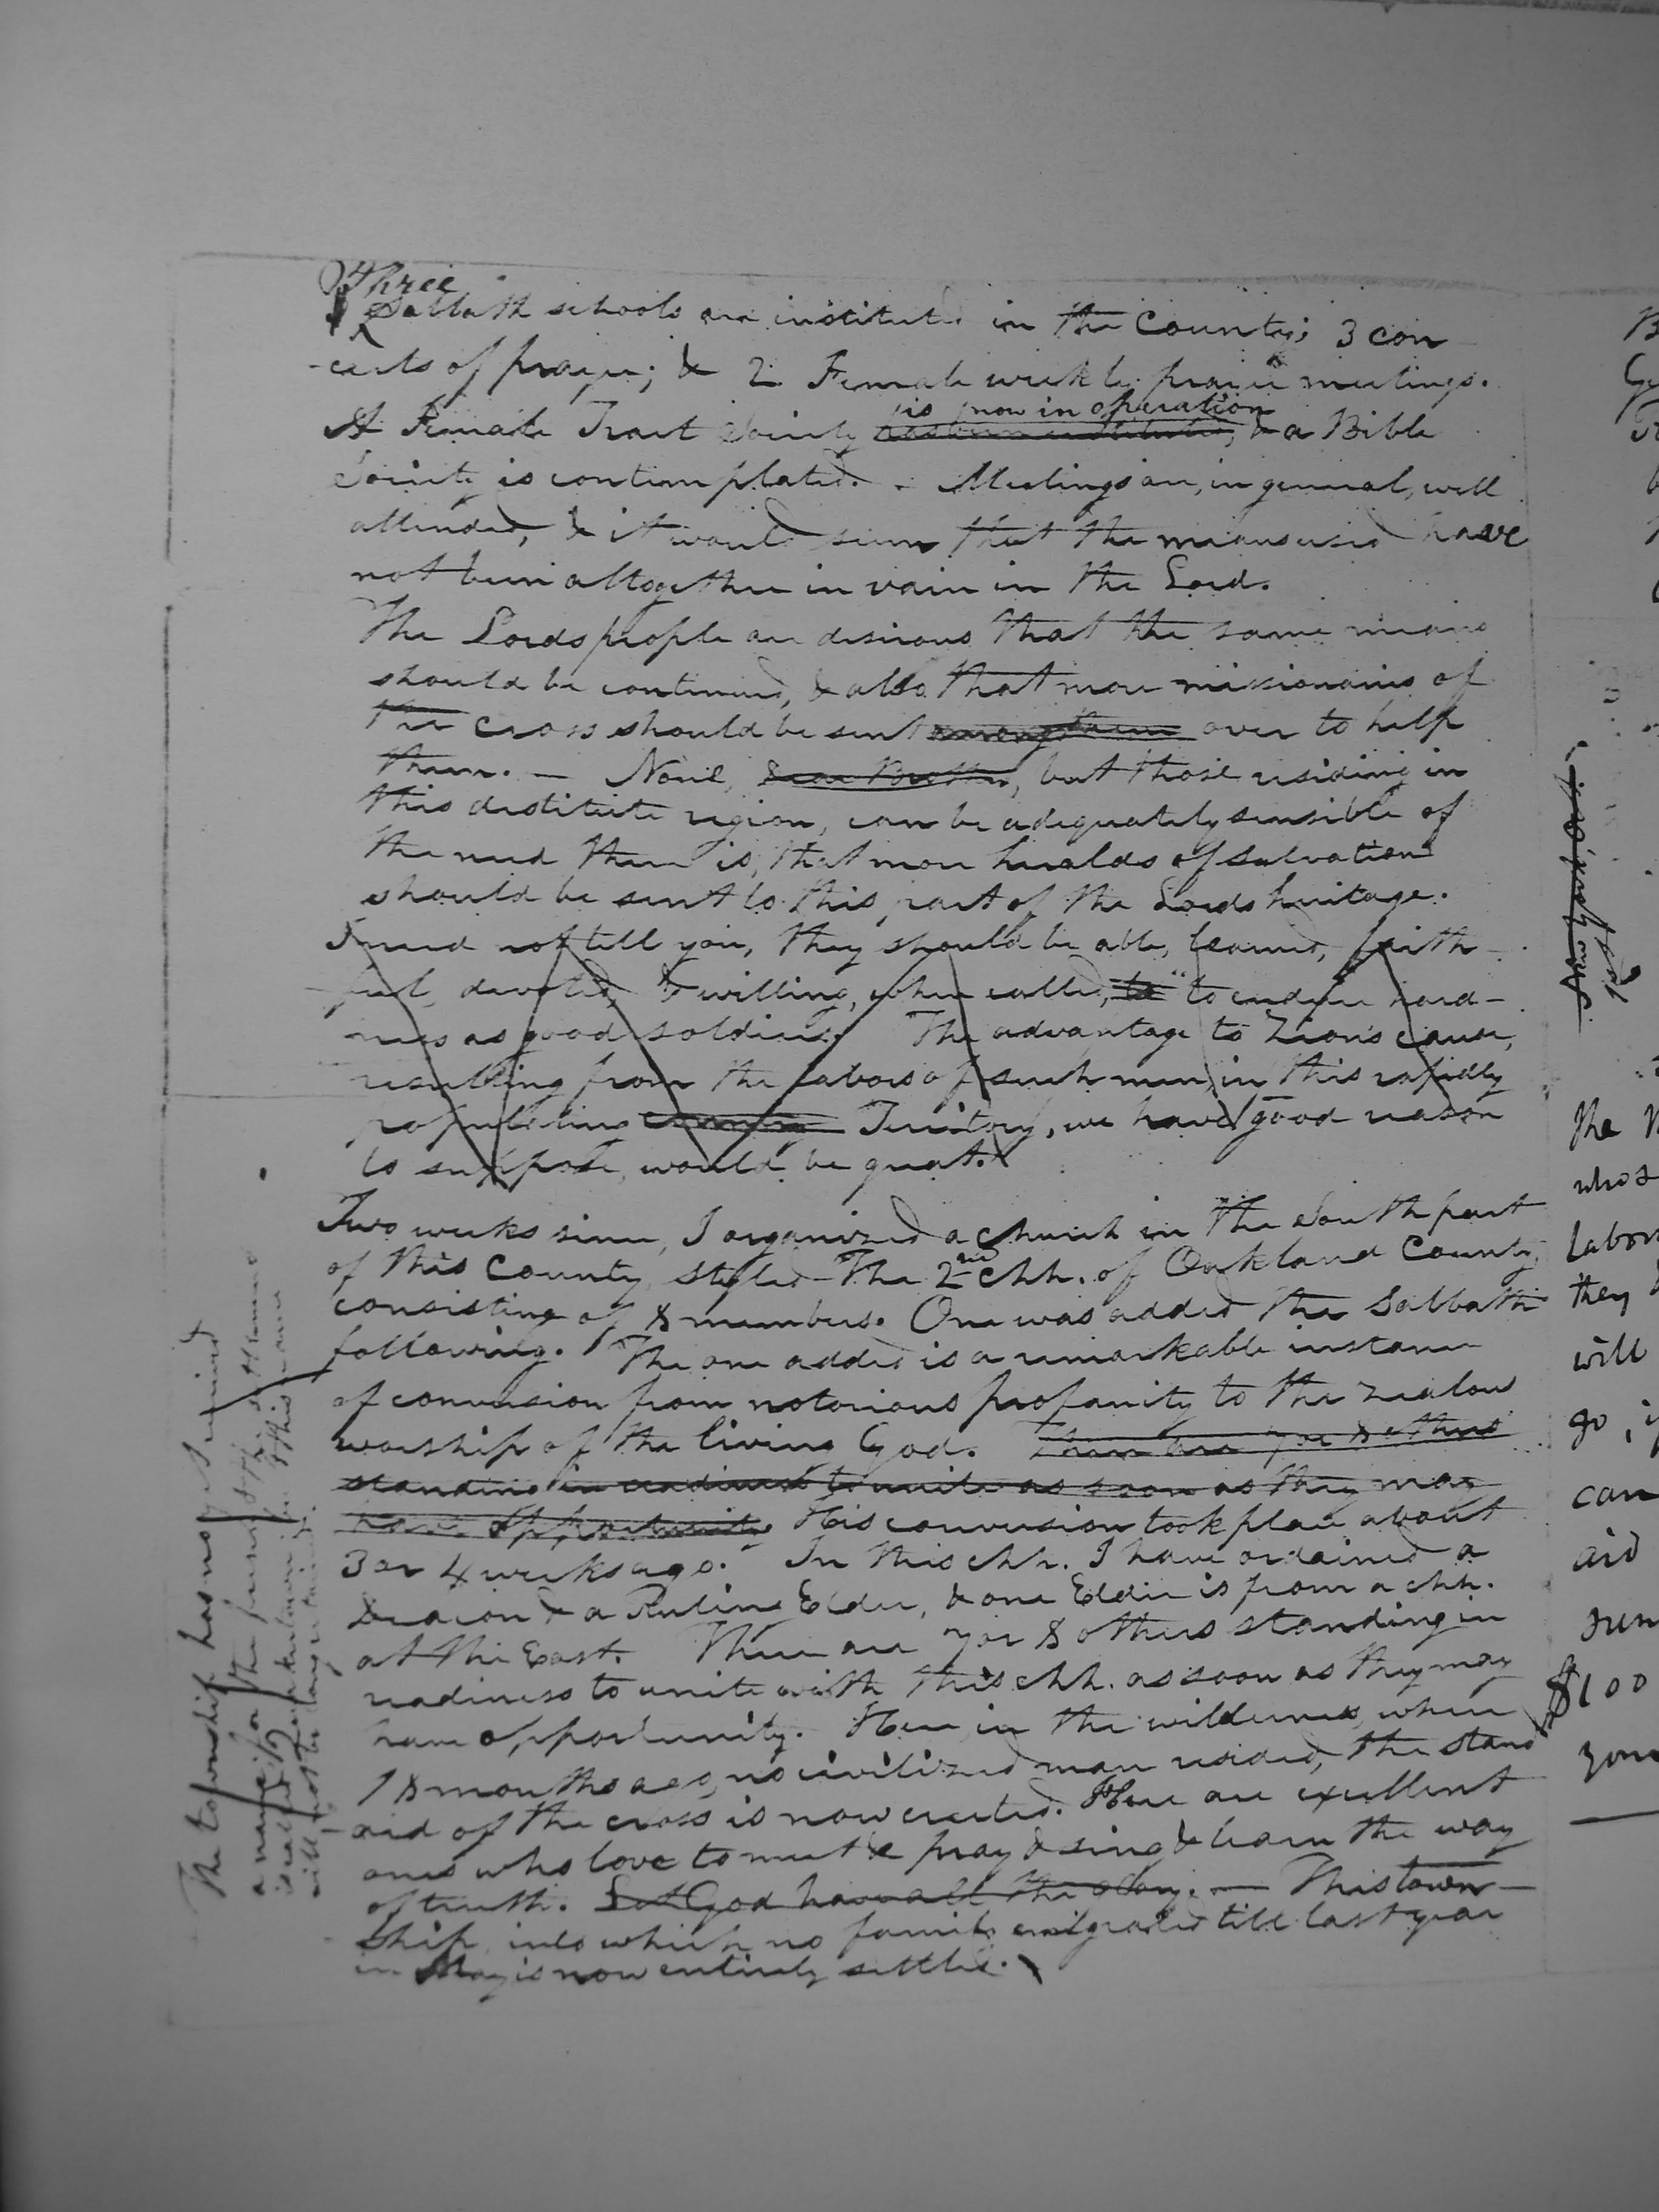 Three
Sabbath schools are instituted in the County; 3 con
-certs of prayer; & 2 Female weekly prayer meetings.
is now in operation
A Female Tract Society has been instituted, & a Bible
Society is contemplated. - Meetings are, in general, well
attended, & it would seem that the means used have
not been altogether in vain in the Lord.
The Lords people are desirous that the same means
should be continued, & also that more missionaries of
the cross should be sent among them over to help
them. — None, Dear Brother, but those residing in
this destitute region, can be adequately sensible of
the need there is, that more heralds of salvation
should be sent to this part of the Lords heritage.
I need not tell you, they should be able, learned, faith-
-ful, devoted, & willing, when called, to "to endure hard-
ness as good soldiers." The advantage to Zion's cause,
resulting from the labors of such men, in this rapidly
populating country Territory, we have good reason
to suppose, would be great.
Two weeks since, I organized a church in the South part
of this County, styled - The 2nd chh. of Oakland County,
consisting of 8 members. One was added the Sabbath
following. The one added is a remarkable instance
of conversion from notorious profanity to the zealous
worship of the living God. There are 7 or 8 others
standing in readiness to unite as soon as they may
have opportunity. His conversion took place about
3 or 4 weeks ago. In this chh. I have ordained a
Deacon & a Ruling Elder, & one Elder is from a chh.
at the East. There are 7 or 8 others standing in
readiness to unite with this chh. as soon as they may
have opportunity. Here in the wilderness, where
18 months ago, no civilized man resided, the stand
ard of the cross is now erected. Here are excellent
ones who love to meet & pray & sing & learn the way
of truth. Let God have all the glory. — This town-
ship, into which no family emigrated till last year
in May is now entirely settled.
The township has not yet received
a name; for the present
is called
will not be long retained.
the
whos
labor
they
will
go, i
can
aid
$100